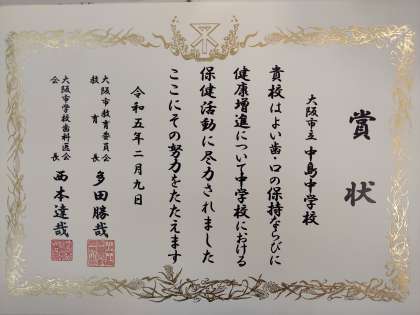 賞状
大阪市立 中島中学校
貴校はよい歯・口の保持ならびに
健康増進について中学校における
保健活動に尽力されました
ここにその努力をたたえます
令和五年二月九日
大阪市教育委員会
教育長 多田勝哉
大阪市学校歯科医会
会長 西本達哉